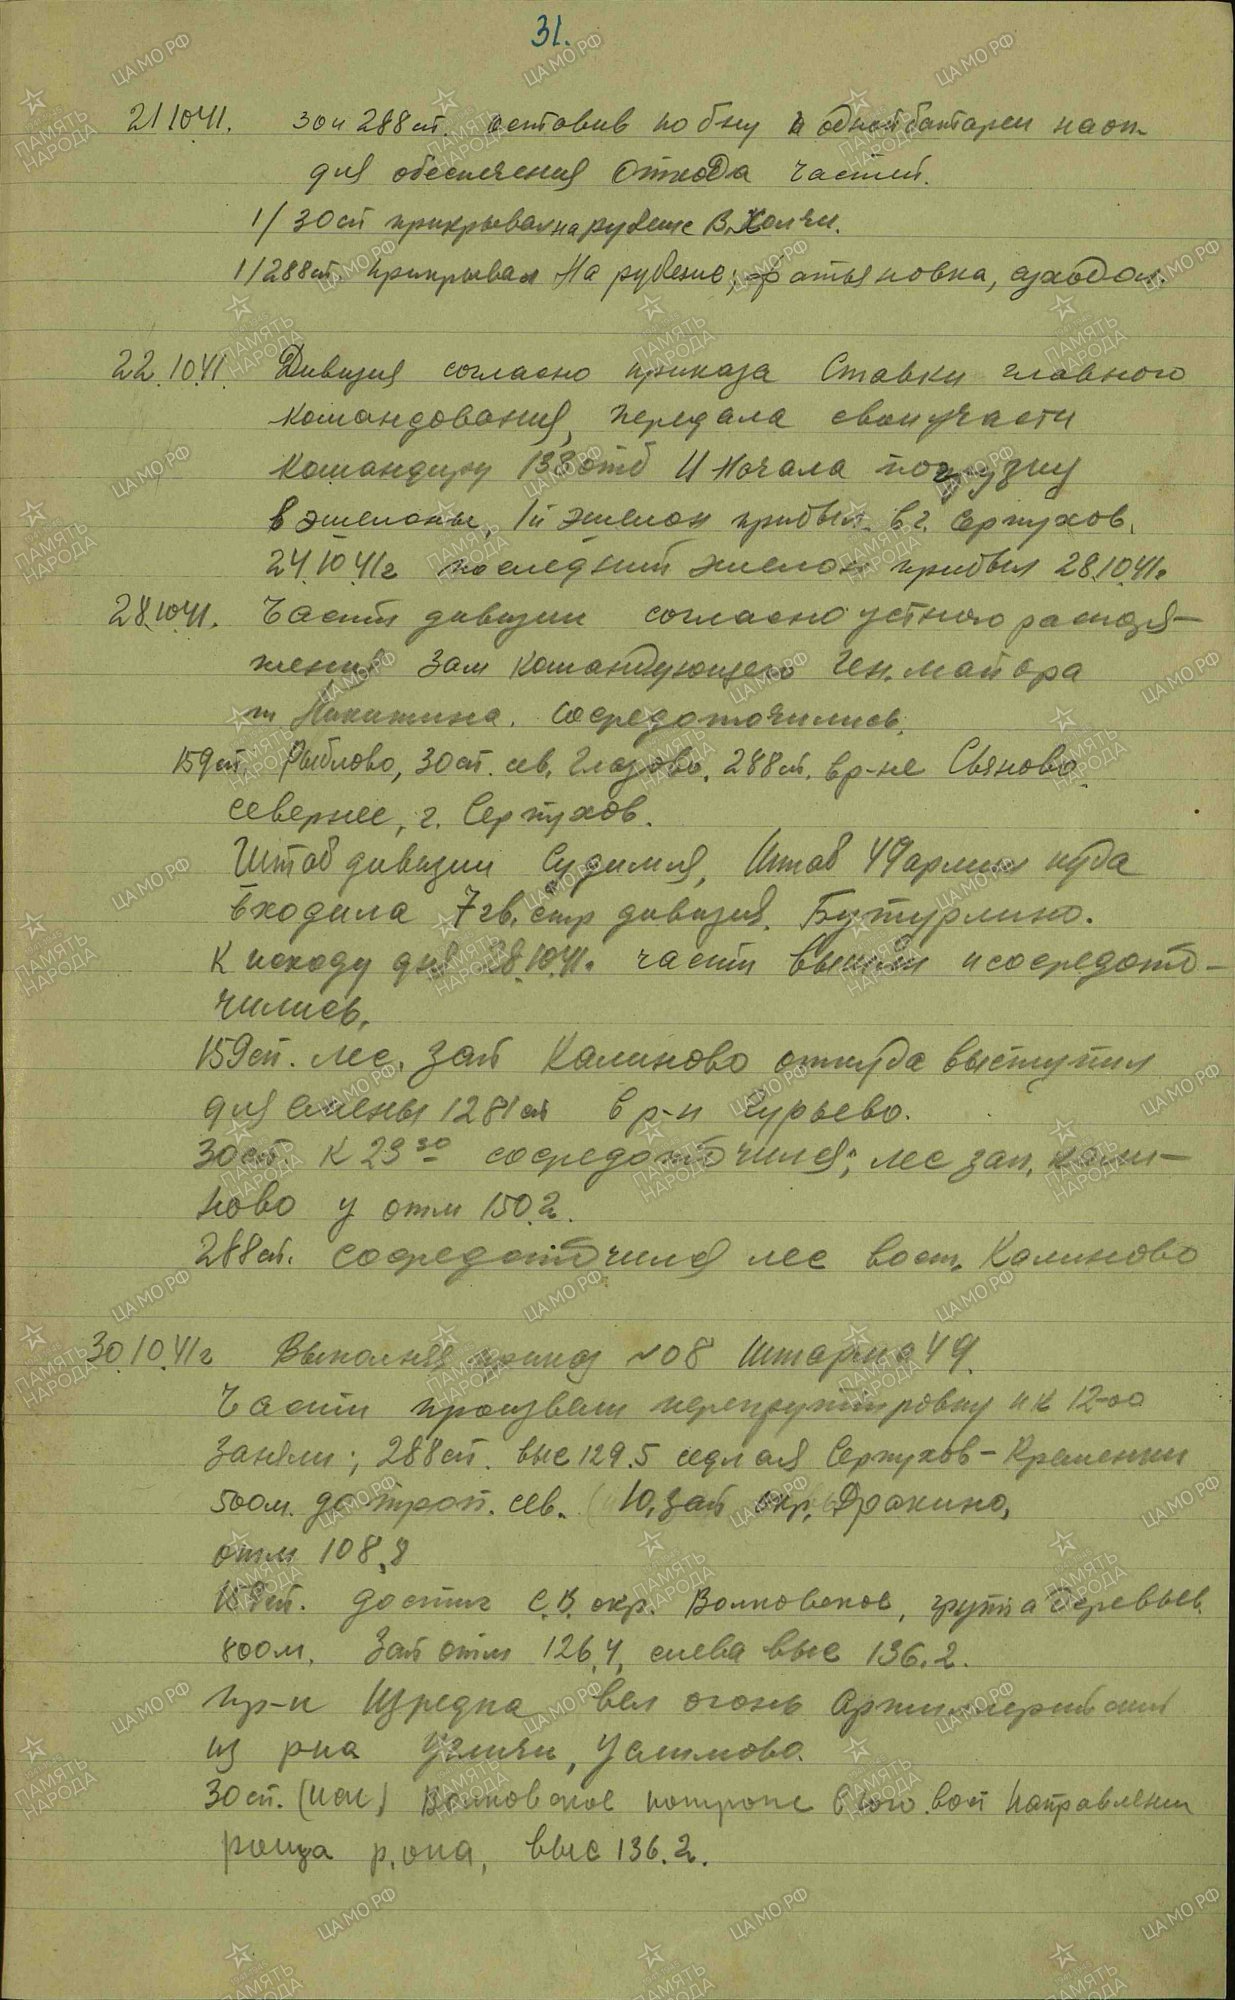 31.
21 10 41. 30 и 288 сп. оставив по б-ну и одной батареи на оп-
для обеспечения отхода частей.
1/30 сп прикрывал на рубеже В. Холчи.
1/288 сп прикрывал на рубеже; Фатьяновка, суходол.
22.10 41. Дивизия согласно приказа Ставки главного
командования, передала свои участи
командиру 133 отб и начала погрузку
в эшелоны, 1й эшелон прибыл в г. Серпухов.
24.10 41г последний эшелон прибыл 28.10.41г
28.10 41. Части дивизии согласно устного распоря-
жения зам командующего Ген. майора
т Никитина. сосредоточились.
159 сп Рыблово, 30 сп. сев. Глазово, 288 сп. в р-не Съяново
севернее, г. Серпухов.
Штаб дивизии Судимля, Штаб 49 армии куда
входила 7 гв. стр дивизия. Бутурлино.
К исходу дня 28.10.41г части вышли и сосредото-
чились.
159 сп. лес. зап Калиново откуда выступил
для смены 1281 сп в р-н Гурьево.
30 сп. к 23 30 сосредоточился; лес зап. Кали-
ново у отм 150.2.
288 сп. сосредоточился лес вост. Калиново
30.10.41г Выполняя приказ №08 Штарма 49.
Части произвели перегруппировку и к 12-00
заняли; 288 сп. выс 129.5 седлая Серпухов - Кременки
500м. до троп. сев. Ю. зап окр. Дракино,
отм 108.8
159 сп. достиг С.В. окр. Волковское, группа деревьев
800м. зап отм 126.4, слева выс 136.2.
Пр-к Изредка вел огонь Артиллерийский
из р-на
30 сп. Волковское в юго. вост направлении
роща р. Ока, выс 136.2.
ЦАМО РФ
ПАМЯТЬ НАРОДА
1941-1945